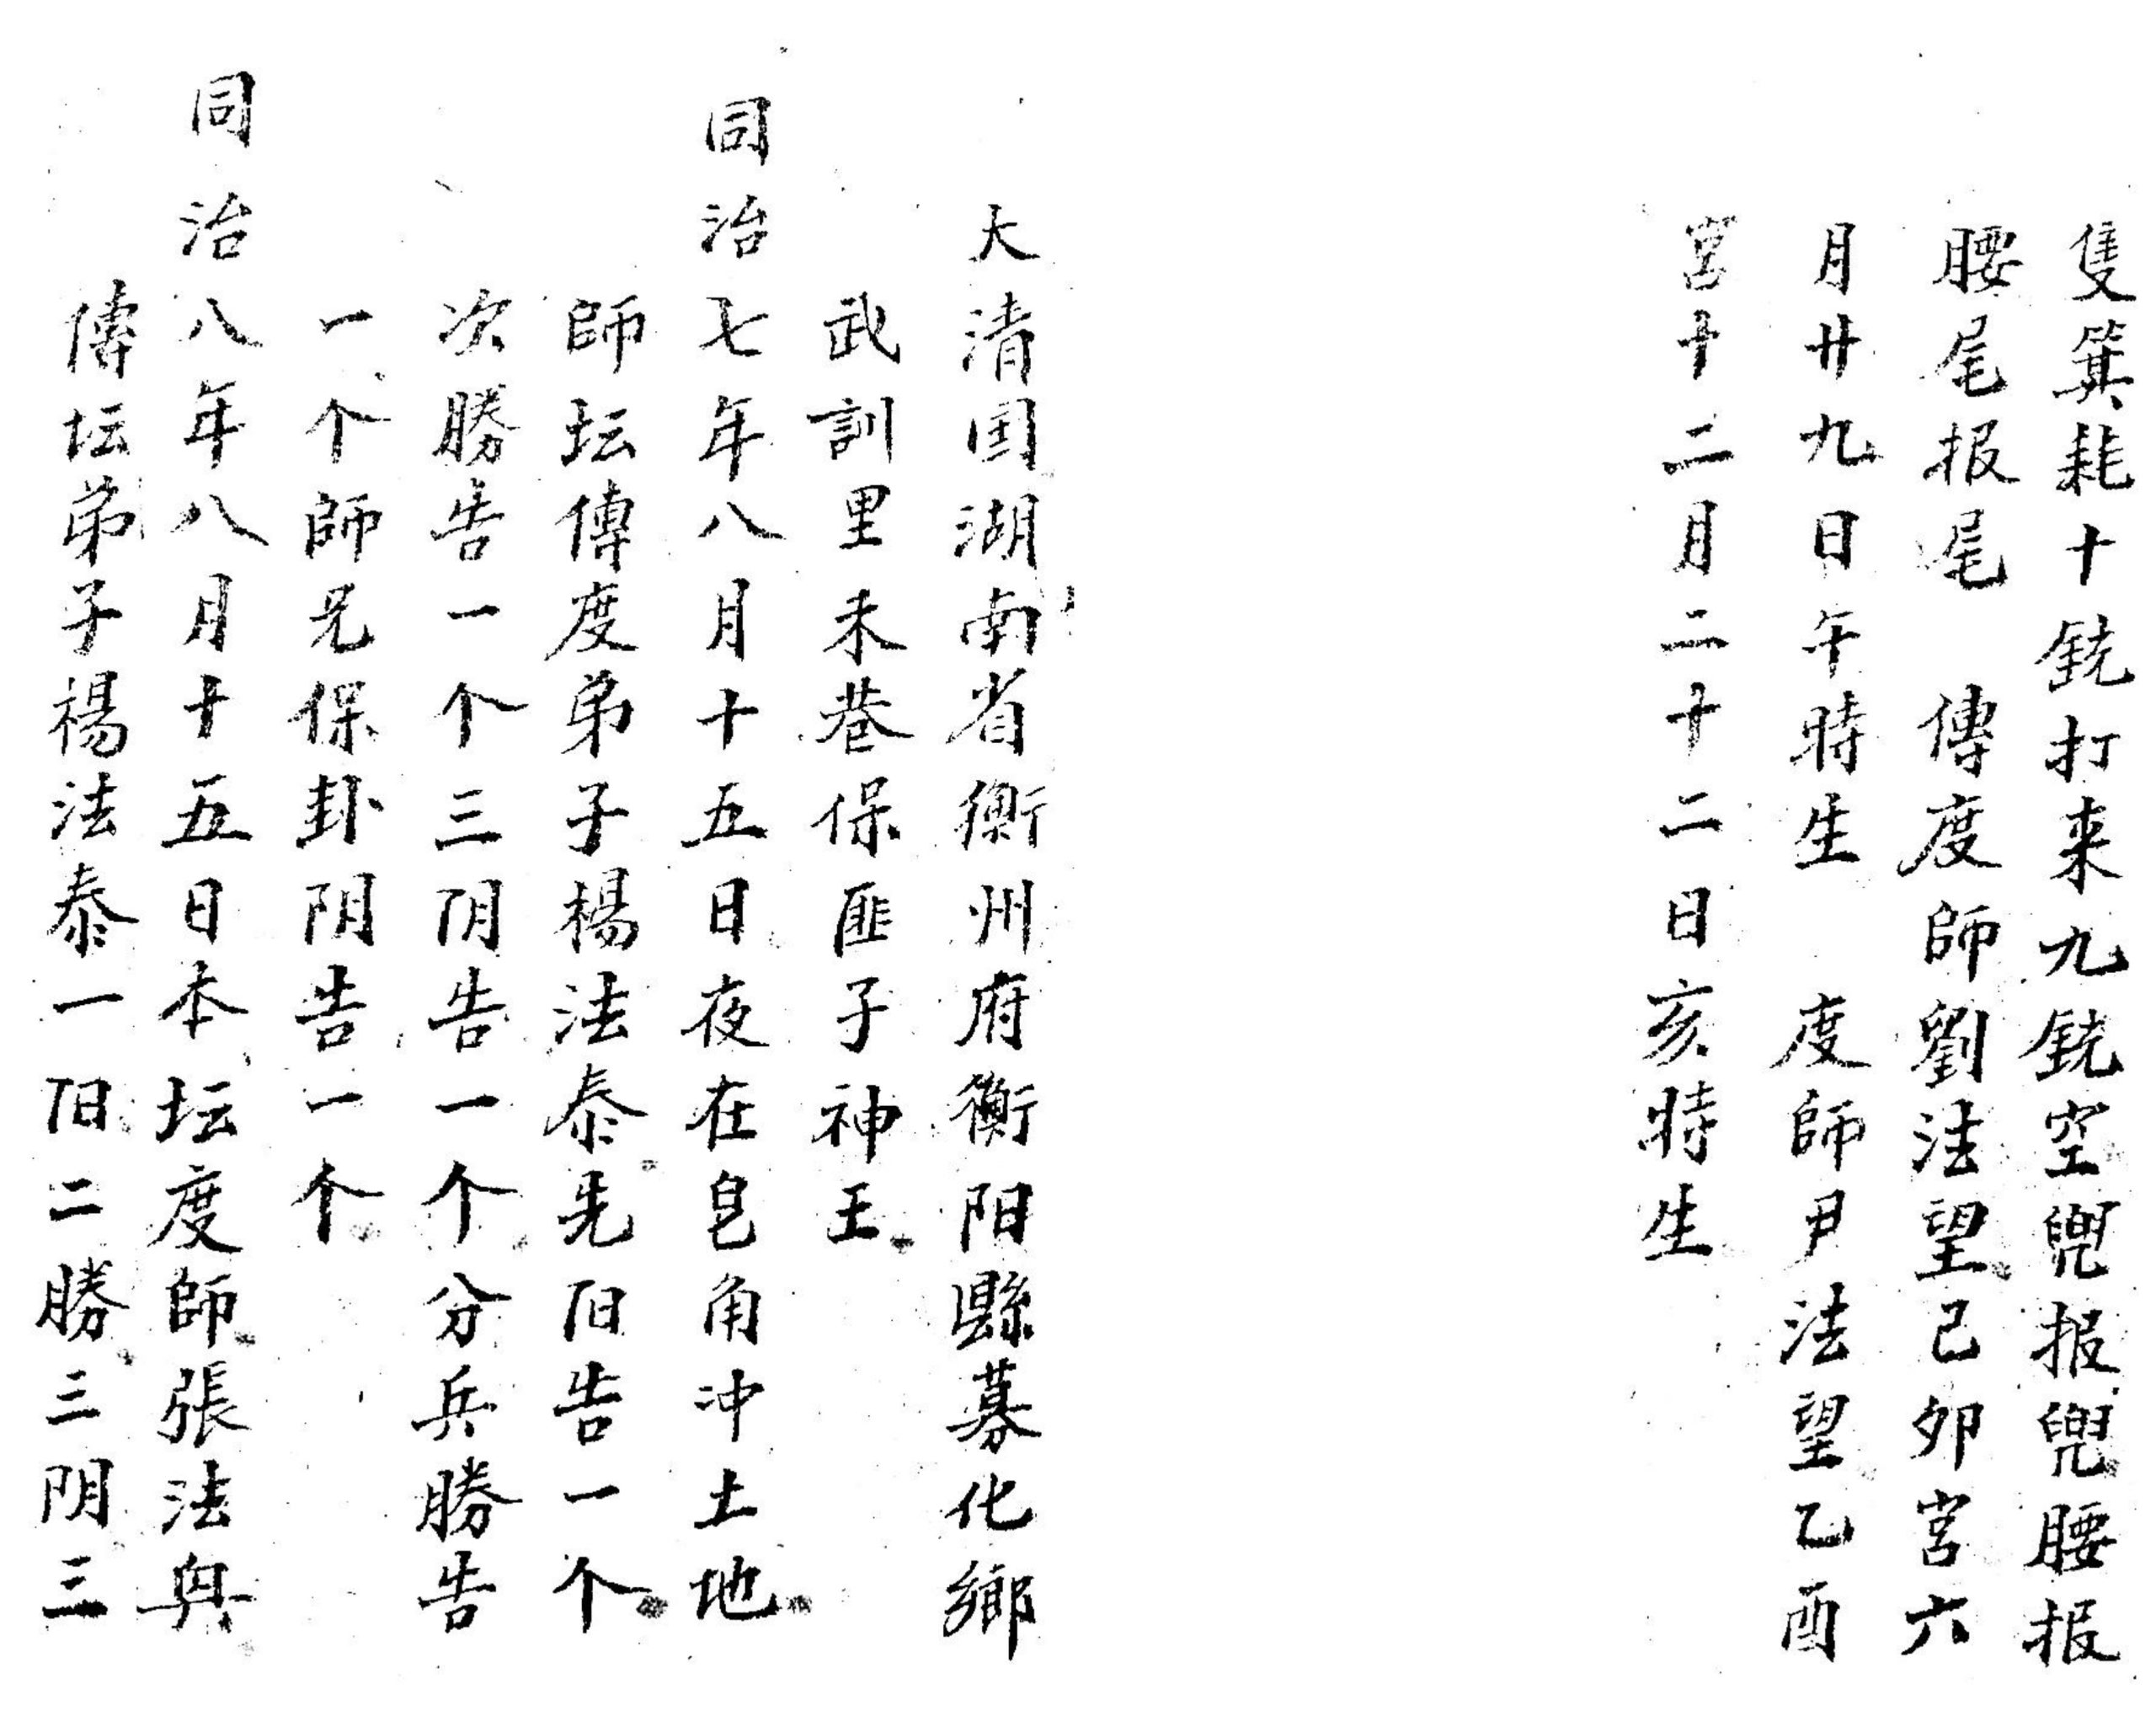 隻箕耗十銃打来九銃空兜报兜腰报
腰尾报尾　傳度師劉法望己卯宮六
月廿九日午時生　度師尹法望乙酉
宮十二月二十二日亥時生
大清国湖南省衡州府衡阳縣募化鄉
武訓里未巷保匪子神王
同治七年八月十五日夜在皀角冲土地
師坛傳度弟子楊法泰先阳告一个
次勝告一个三阴告一个分兵勝告
一个師兄保卦阴告一个
同治八年八月十五日本坛度師張法興
傳坛弟子楊法泰一阳二勝三阴三